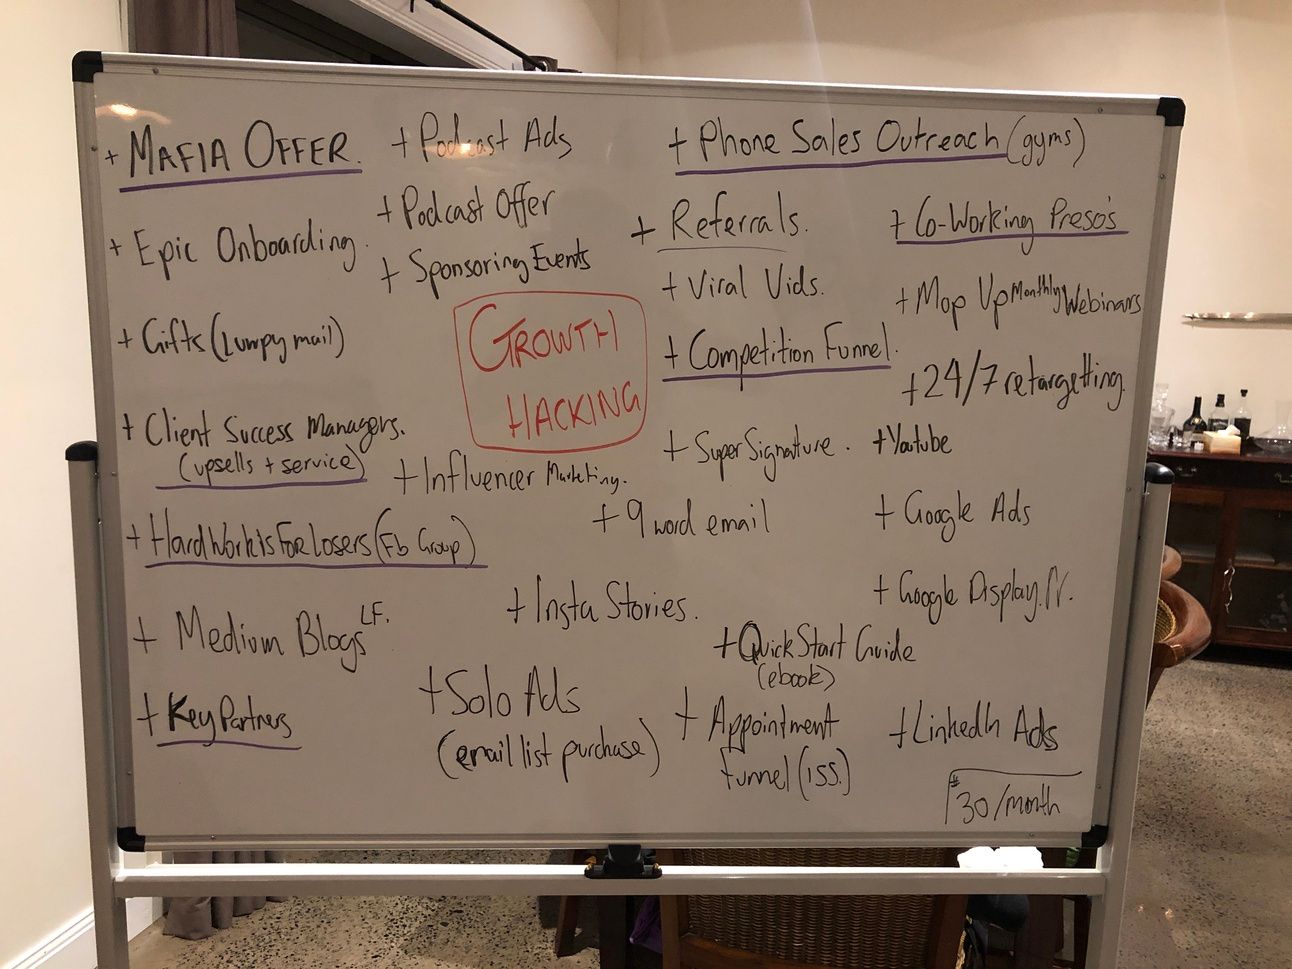 + MAFIA OFFER.
+ Epic Onboarding.
+ Gifts (Lumpy mail)
+ Client Success Managers.
(upsells + service)
+ HardWorkisForLosers (Fb Group)
+ Medium Blogs LF.
+ Key Partners
+ Podcast Ads
+ Podcast Offer
+ Sponsoring Events
GROWTH
HACKING
+ Influencer Marketing.
+ 9 word email
+ Insta Stories.
+ Solo Ads
(email list purchase)
+ Phone Sales Outreach (gyms)
+ Referrals.
+ Viral Vids.
+ Competition Funnel.
+ Super Signature.
+ Quick Start Guide
(ebook)
+ Appointment
funnel (1SS.)
+ Co-Working Preso's
+ Mop Up Monthly Webinars
+ 24/7 retargetting.
+ Youtube
+ Google Ads
+ Google Display.
+ LinkedIn Ads
#30/month